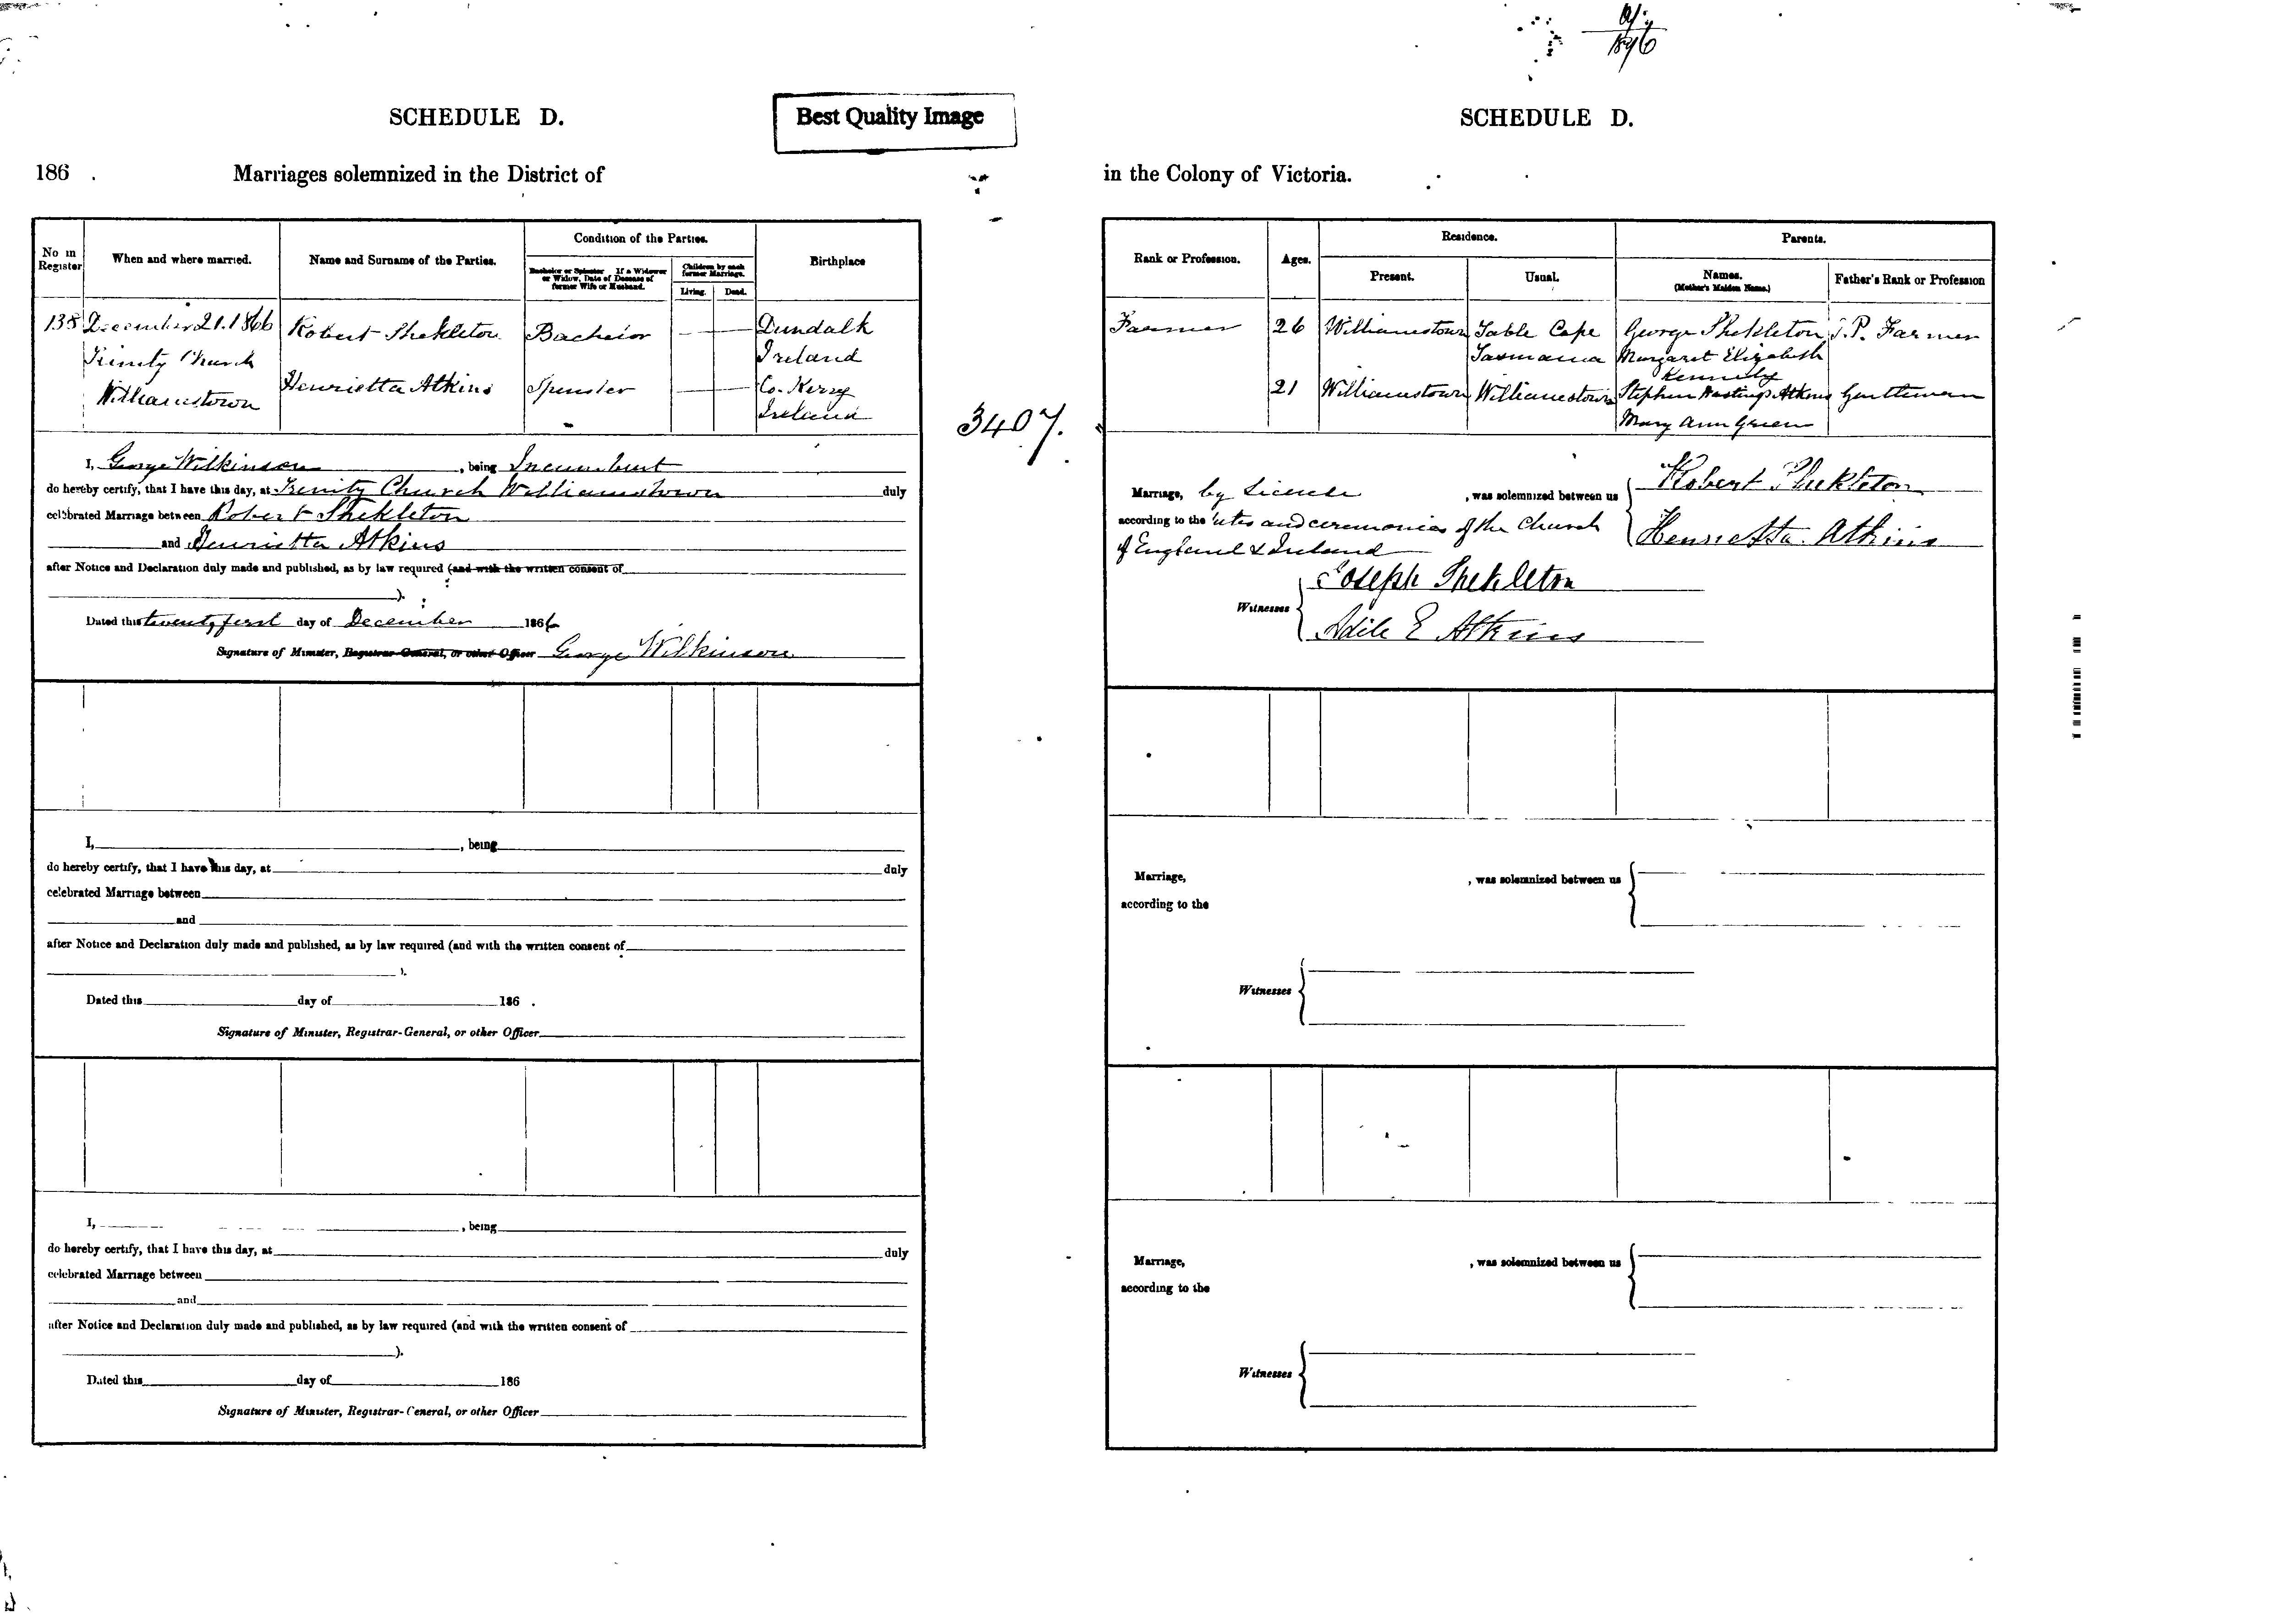 SCHEDULE D.
Best Quality Image
186 . Marriages solemnized in the District of
No in Register
When and where married.
Name and Surname of the Parties.
Condition of the Parties.
Bachelor or Spinster If a Widower or Widow, Date of Decease of former Wife or Husband.
Children by each former Marriage.
Living. Dead.
Birthplace
138 December 21. 1866 Robert Shekleton Bachelor Dundalk
Trinity Church Ireland
Williamstown Henrietta Atkins Spinster Co. Kerry
Ireland
I, George Wilkinson, being Incumbent
do hereby certify, that I have this day, at Trinity Church Williamstown duly
celebrated Marriage between Robert Shekleton
and Henrietta Atkins
after Notice and Declaration duly made and published, as by law required (and with the written consent of
).
Dated this twenty first day of December 1866
Signature of Minister, Registrar-General, or other Officer George Wilkinson
I, , being
do hereby certify, that I have this day, at duly
celebrated Marriage between
and
after Notice and Declaration duly made and published, as by law required (and with the written consent of
).
Dated this day of 186 .
Signature of Minister, Registrar-General, or other Officer
I, , being
do hereby certify, that I have this day, at duly
celebrated Marriage between
and
after Notice and Declaration duly made and published, as by law required (and with the written consent of
).
Dated this day of 186
Signature of Minister, Registrar-General, or other Officer
3407.
1896
SCHEDULE D.
in the Colony of Victoria.
Rank or Profession.
Ages.
Residence.
Present. Usual.
Parents.
Names.
(Mother's Maiden Name.)
Father's Rank or Profession
Farmer 26 Williamstown Table Cape George Shekleton J.P. Farmer
Tasmania Margaret Elizabeth
Kennedy
21 Williamstown Williamstown Stephen Hastings Atkins Gentleman
Mary Ann Green
Marriage, by License, was solemnized between us Robert Shekleton
according to the rites and ceremonies of the Church Henrietta Atkins
of England & Ireland
Witnesses Joseph Shekleton
Adile E Atkins
Marriage, , was solemnized between us
according to the
Witnesses
Marriage, , was solemnized between us
according to the
Witnesses